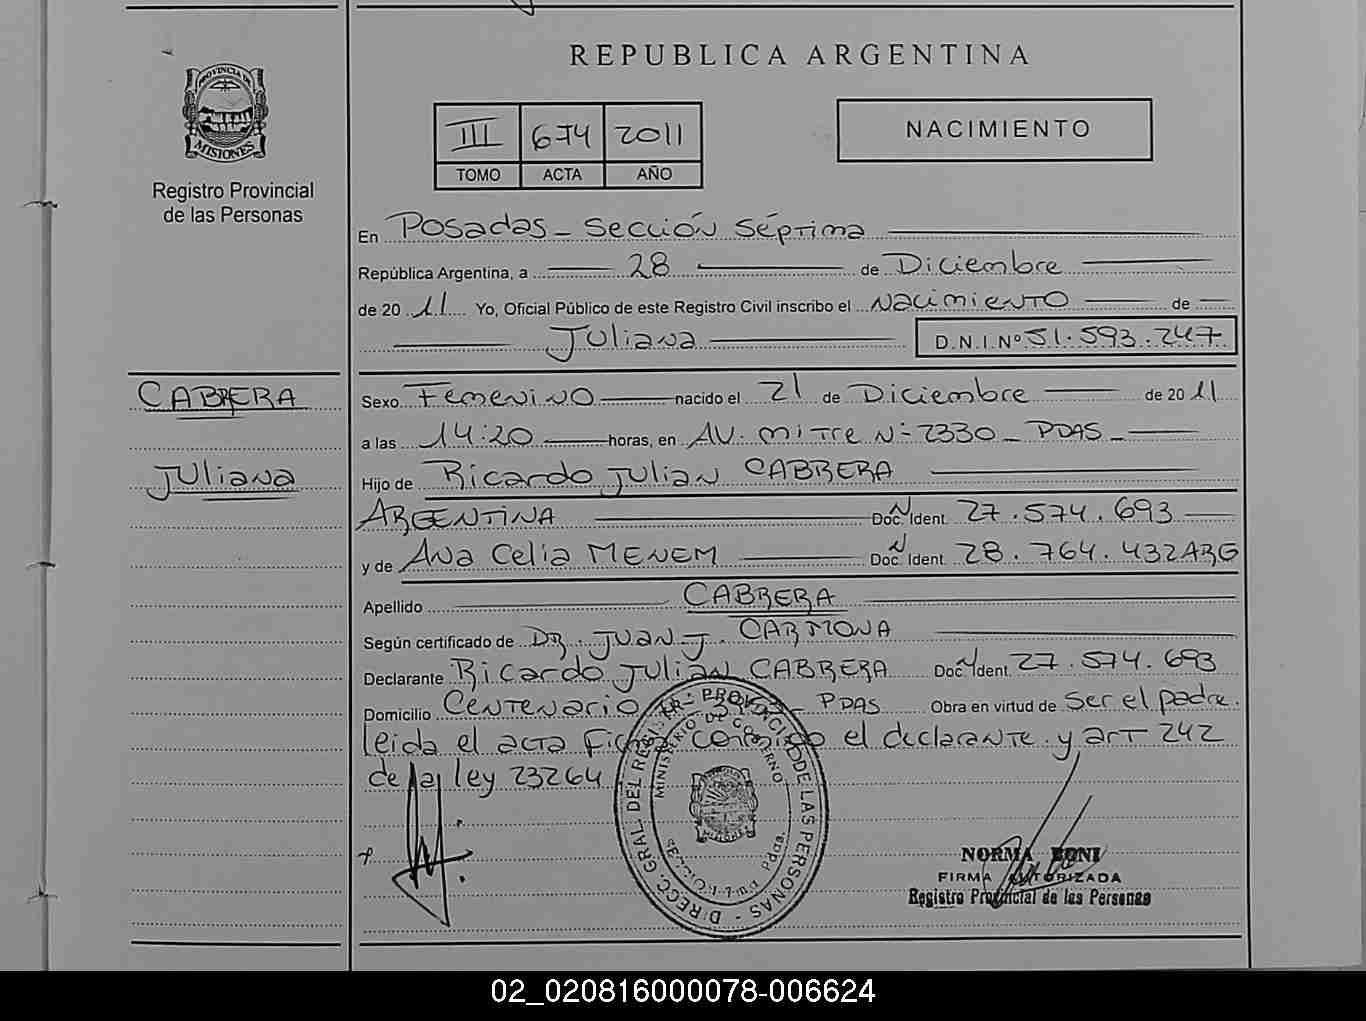 REPUBLICA ARGENTINA
PROVINCIA DE
MISIONES
Registro Provincial
de las Personas
III 674 2011
TOMO ACTA AÑO
NACIMIENTO
En Posadas - Sección Séptima
República Argentina, a 28 de Diciembre
de 2011 Yo, Oficial Público de este Registro Civil inscribo el Nacimiento de
Juliana D.N.I Nº 51.593.247
CABRERA
Juliana
Sexo Femenino nacido el 21 de Diciembre de 2011
a las 14:20 horas, en AV. Mitre Nº 2330 - PDAS -
Hijo de Ricardo Julian CABRERA
ARGENTINA Doc. Ident. 27.574.693
y de Ana Celia MENEM Doc. Ident. 28.764.432 ARG
Apellido CABRERA
Según certificado de DR. JUAN J. CARMONA
Declarante Ricardo Julian CABRERA Doc. Ident. 27.574.693
Domicilio Centenario - PDAS Obra en virtud de Ser el padre.
leida el acta conmigo el declarante y art 242
de la ley 23264
DIRECC. GRAL. DEL REGISTR. PROVINCIAL DE LAS PERSONAS
MINISTERIO DE GOBIERNO
MISIONES
Pdas.
NORMA BONI
FIRMA AUTORIZADA
Registro Provincial de las Personas
02_020816000078-006624